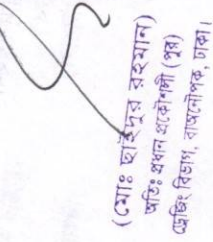 (মোঃ ছাইদুর রহমান)
অতিঃ প্রধান প্রকৌশলী (পুর)
ড্রেজিং বিভাগ, বাঅনৌপক, ঢাকা।